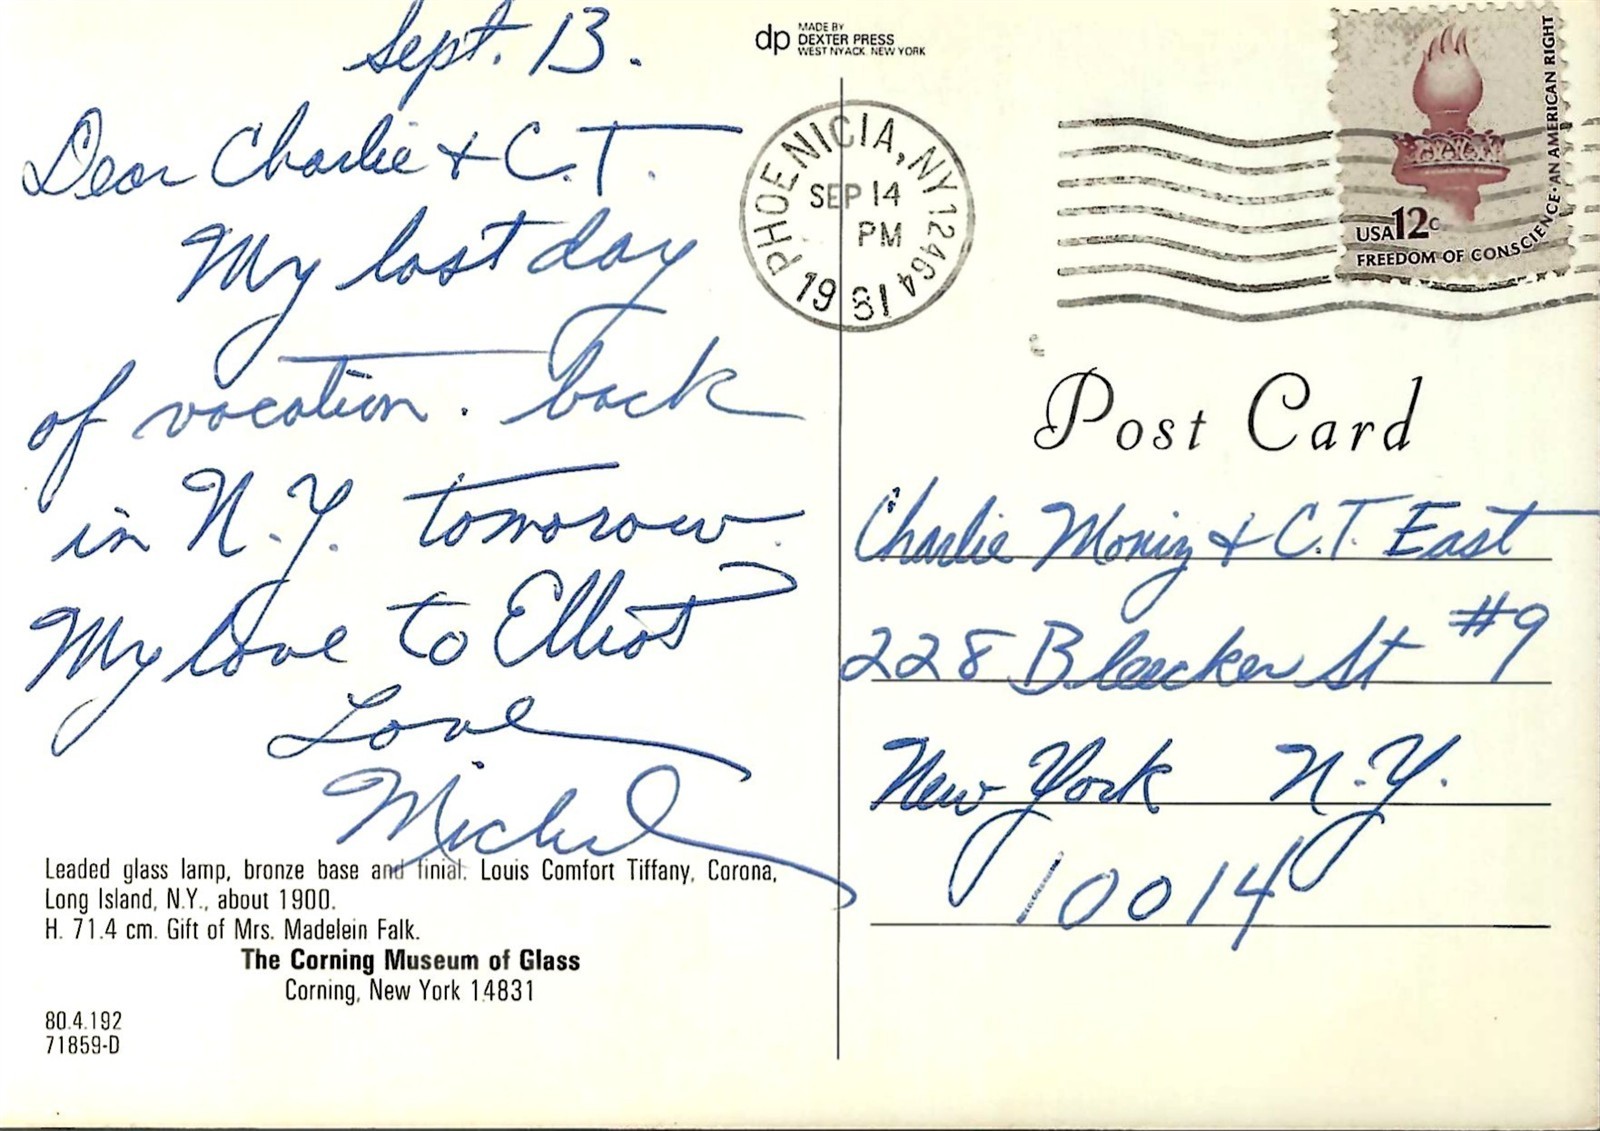 Sept. 13.
Dear Charlie & C.T.
My last day
of vacation. back
in N.Y. tomorow.
My love to Elliot
Love
Michel
Leaded glass lamp, bronze base and finial. Louis Comfort Tiffany, Corona,
Long Island, N.Y., about 1900.
H. 71.4 cm. Gift of Mrs. Madelein Falk.
The Corning Museum of Glass
Corning, New York 14831
80.4.192
71859-D
dp MADE BY
DEXTER PRESS
WEST NYACK NEW YORK
PHOENICIA, NY 12464
SEP 14
PM
1981
USA 12c
FREEDOM OF CONSCIENCE·AN AMERICAN RIGHT
Post Card
Charlie Moniz & C.T. East
228 Bleecker St #9
New York N.Y.
10014